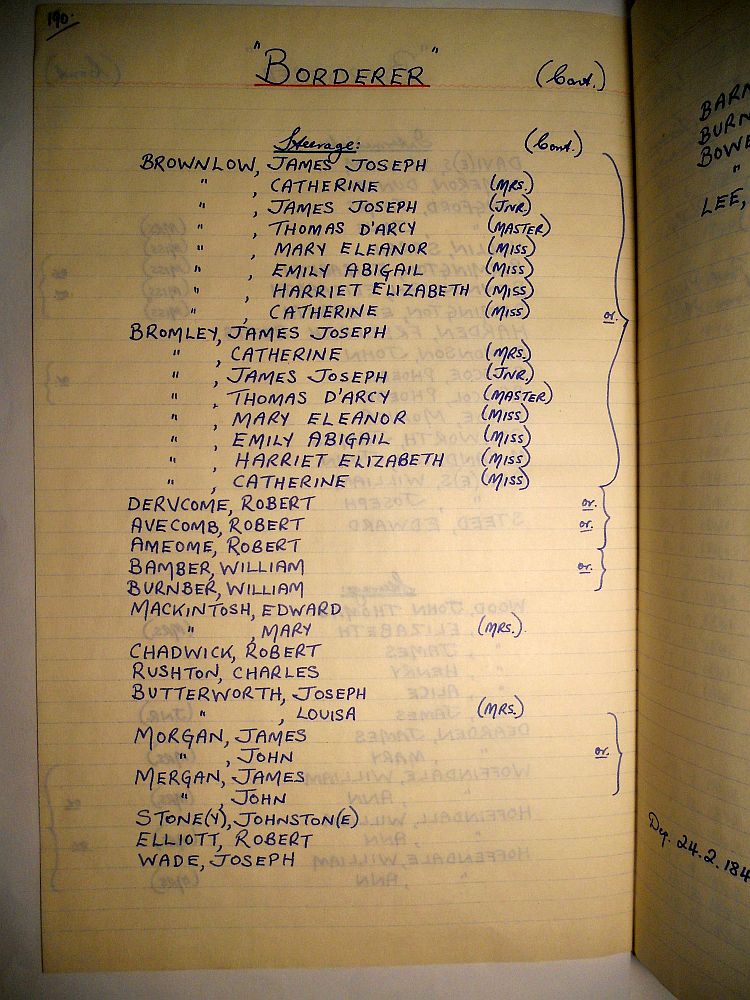 190.
"BORDERER" (Cont.)
Steerage: (Cont.)
BROWNLOW, JAMES JOSEPH
" , CATHERINE (MRS.)
" , JAMES JOSEPH (JNR)
" , THOMAS D'ARCY (MASTER)
" , MARY ELEANOR (MISS)
" , EMILY ABIGAIL (MISS)
" , HARRIET ELIZABETH (MISS)
" , CATHERINE (MISS) or.
BROMLEY, JAMES JOSEPH
" , CATHERINE (MRS.)
" , JAMES JOSEPH (JNR.)
" , THOMAS D'ARCY (MASTER)
" , MARY ELEANOR (MISS)
" , EMILY ABIGAIL (MISS)
" , HARRIET ELIZABETH (MISS)
" , CATHERINE (MISS)
DERVCOME, ROBERT or.
AVECOMB, ROBERT or.
AMEOME, ROBERT
BAMBER, WILLIAM or.
BURNBER, WILLIAM
MACKINTOSH, EDWARD
" , MARY (MRS.)
CHADWICK, ROBERT
RUSHTON, CHARLES
BUTTERWORTH, JOSEPH
" , LOUISA (MRS.)
MORGAN, JAMES
" , JOHN or.
MERGAN, JAMES
" , JOHN
STONE(Y), JOHNSTON(E)
ELLIOTT, ROBERT
WADE, JOSEPH
BARN
BURN
BOWE
"
LEE,
Dep. 24.2.184